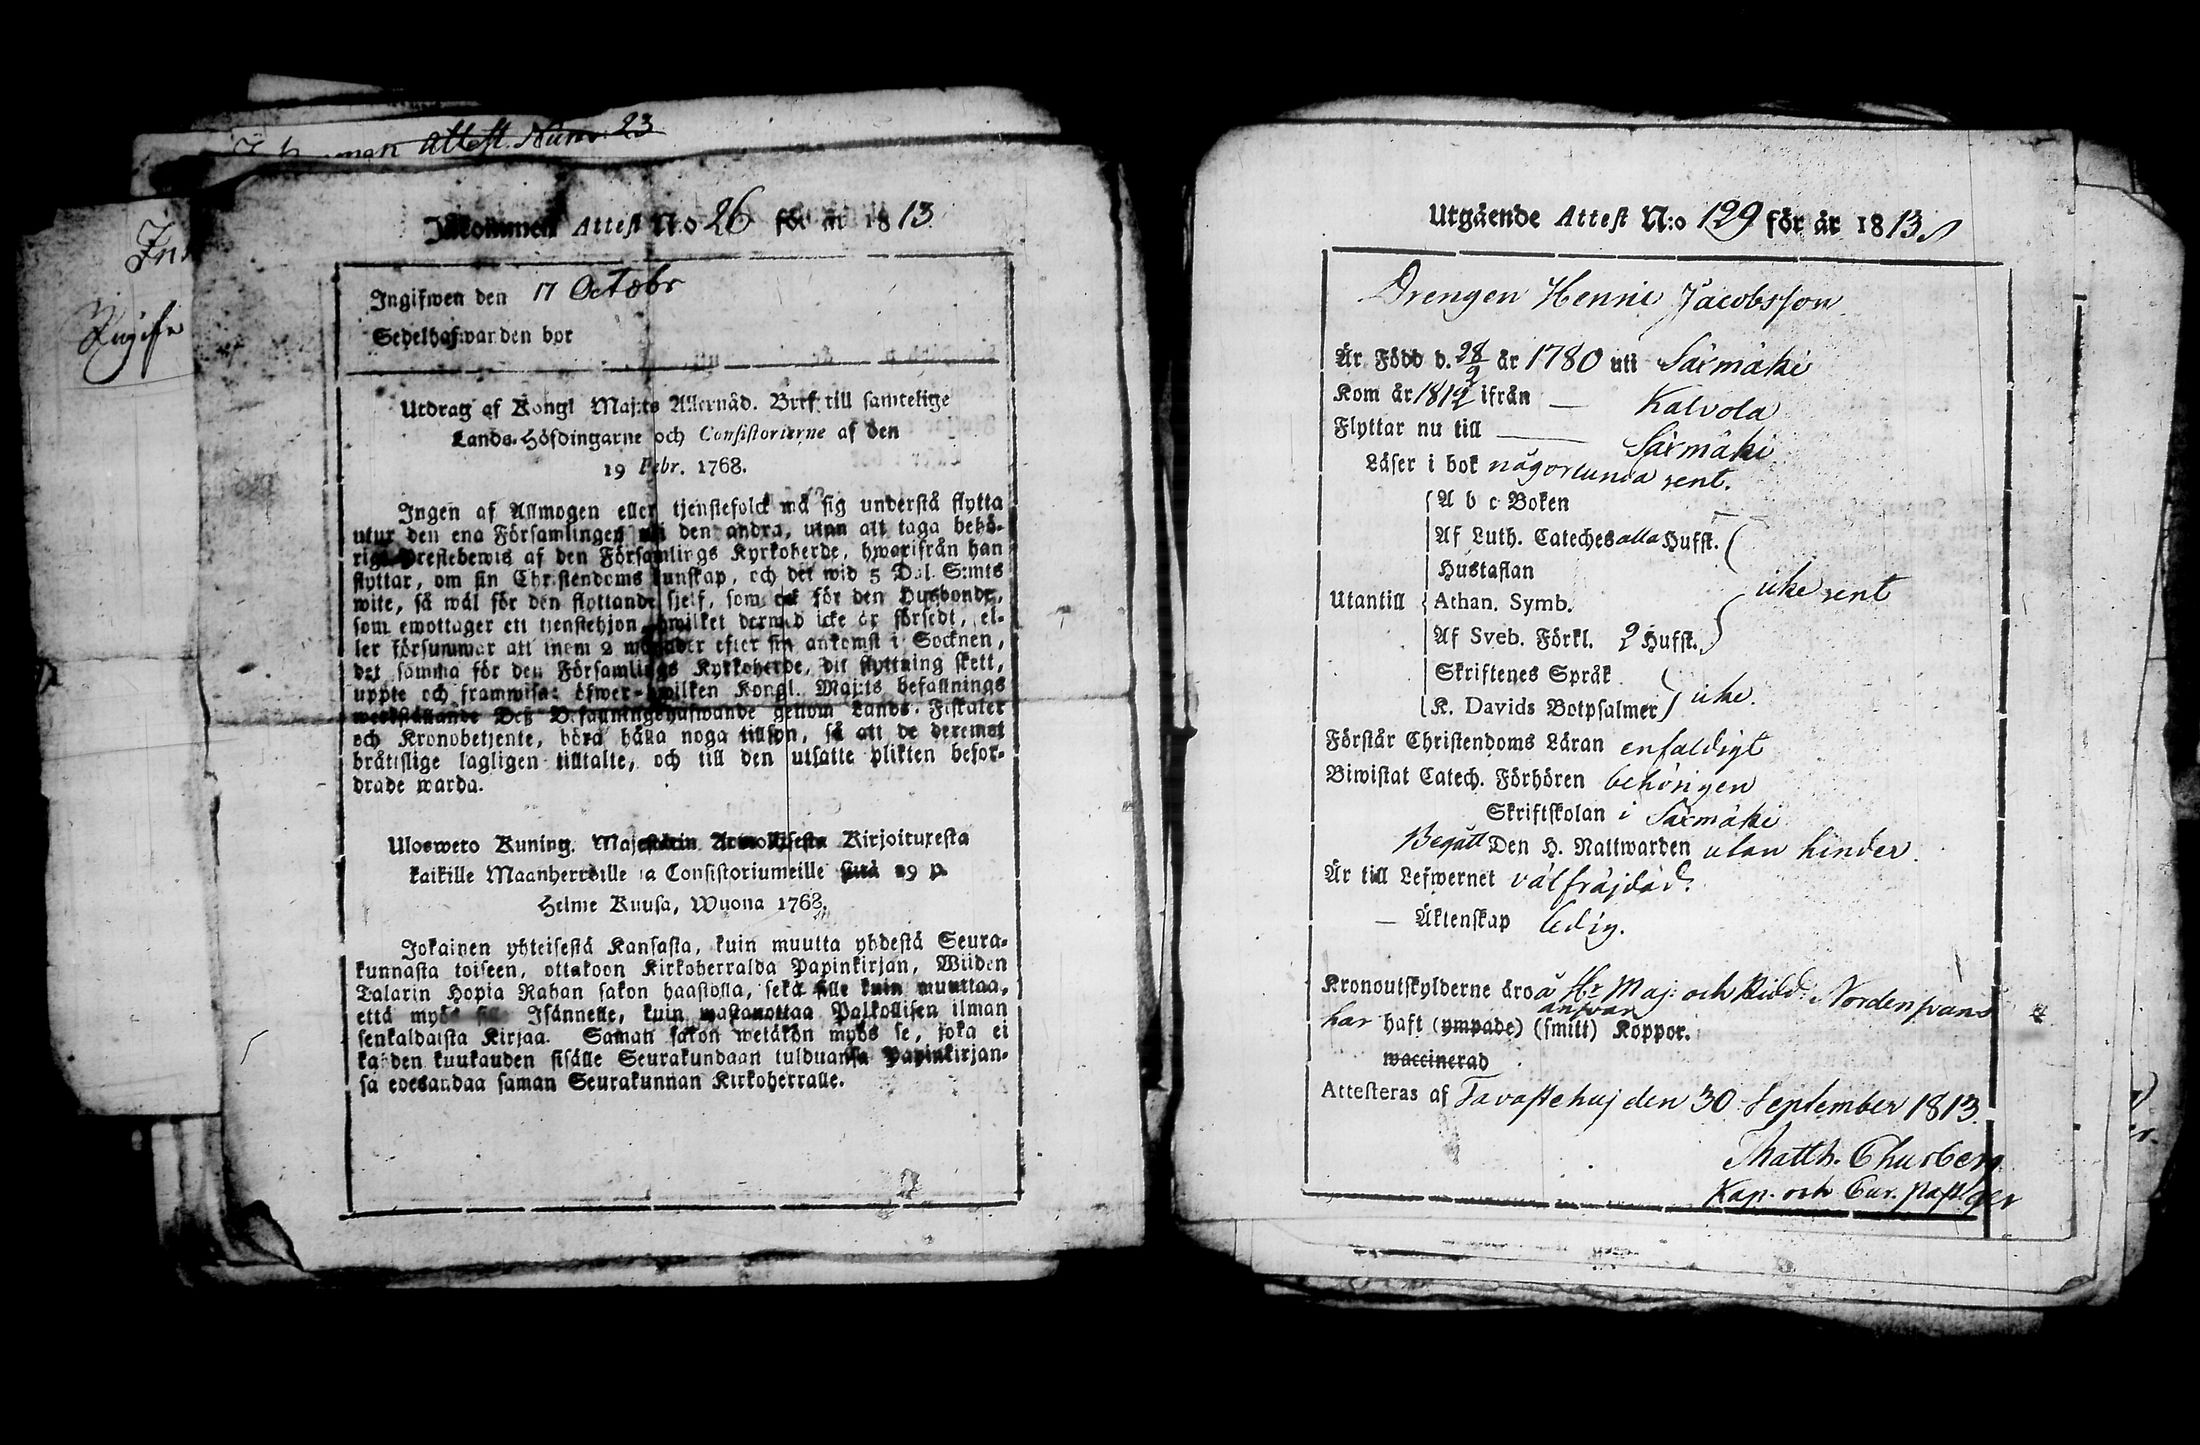 attest. Num: 23
Inkommen Attest N:o 26 för år 1813
Ingifwen den 17 Octobr
Sedelhafwanden bor
Utdrag af Kongl Maj:ts Allernåd. Bref till samtelige
Lands-Höfdingarne och Consistorierne af den
19 Febr. 1768.
Ingen af Allmogen eller tjenstefolck må sig understå flytta
utur den ena Församlingen uti den andra, utan att taga behö-
rigt Prestebewis af den Församlings Kyrkoherde, hwarifrån han
flyttar, om sin Christendoms kunskap, och det wid 5 Dal. S:mts
wite, så wäl för den flyttande sjelf, som ock för den Husbonde,
som emottager ett tjenstehjon, hwilket dermed icke är försedt, el-
ler försummar att inom 2 månader efter sin ankomst i Socknen,
det samma för den Församlings Kyrkoherde, dit flyttning skett,
uppte och framwisa: öfwer hwilken Kongl. Maj:ts befallnings
werkställande Deß Befallningshafwande genom Lands-Fiskaler
och Kronobetjente, böra hålla noga tillsyn, så att de deremot
bråttslige lagligen tilltalte, och till den utsatte plikten befor-
drade warda.
Uloswetо Kuning. Majestetin Armollisesta Kirjoituxesta
kaikille Maanherroille ja Consistoriumeille siitä 19 p.
Helme Kuusa, Wuona 1768.
Jokainen yhteisestä Kansasta, kuin muutta yhdestä Seura-
kunnasta toiseen, ottakoon Kirkoherralda Papinkirjan, Wiiden
Talarin Hopia Rahan sakon haastolla, sekä sille kuin muuttaa,
että myös sille Isännelle, kuin wastanottaa Palkollisen ilman
senkaldaista Kirjaa. Saman sakon wetäkön myös se, joka ei
kahden kuukauden sisälle Seurakundaan tulduansa Papinkirjan-
sa edesandaa saman Seurakunnan Kirkoherralle.
Utgående Attest N:o 129 för år 1813
Drengen Henric Jacobsson
Är Född d. 28/2 år 1780 uti Säxmäki
Kom år 1812 ifrån — Kalvola
Flyttar nu till — Säxmäki
Läser i bok någorlunda rent.
A b c Boken
Af Luth. Cateches alla Hufst.
Hustaflan
icke rent
Utantill Athan. Symb.
Af Sveb. Förkl. 2 Hufst.
Skriftenes Språk
K. Davids Botpsalmer icke.
Förstår Christendoms Läran enfaldigt
Biwistat Catech. Förhören behörigen
Skriftskolan i Säxmäki
Begått Den H. Nattwarden utan hinder.
Är till Lefwernet välfräjdad.
— Äktenskap ledig.
Kronoutskylderne äro å Hr Maj: och Ridd: Nordensvans
ansvar
har haft (ympade) (smitt) Koppor.
waccinerad
Attesteras af Tavastehus den 30 September 1813.
Matth. Churberg
Kap. och Cur. past.